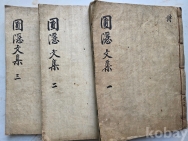 圃隱文集 一
圃隱文集 二
圃隱文集 三
kobay